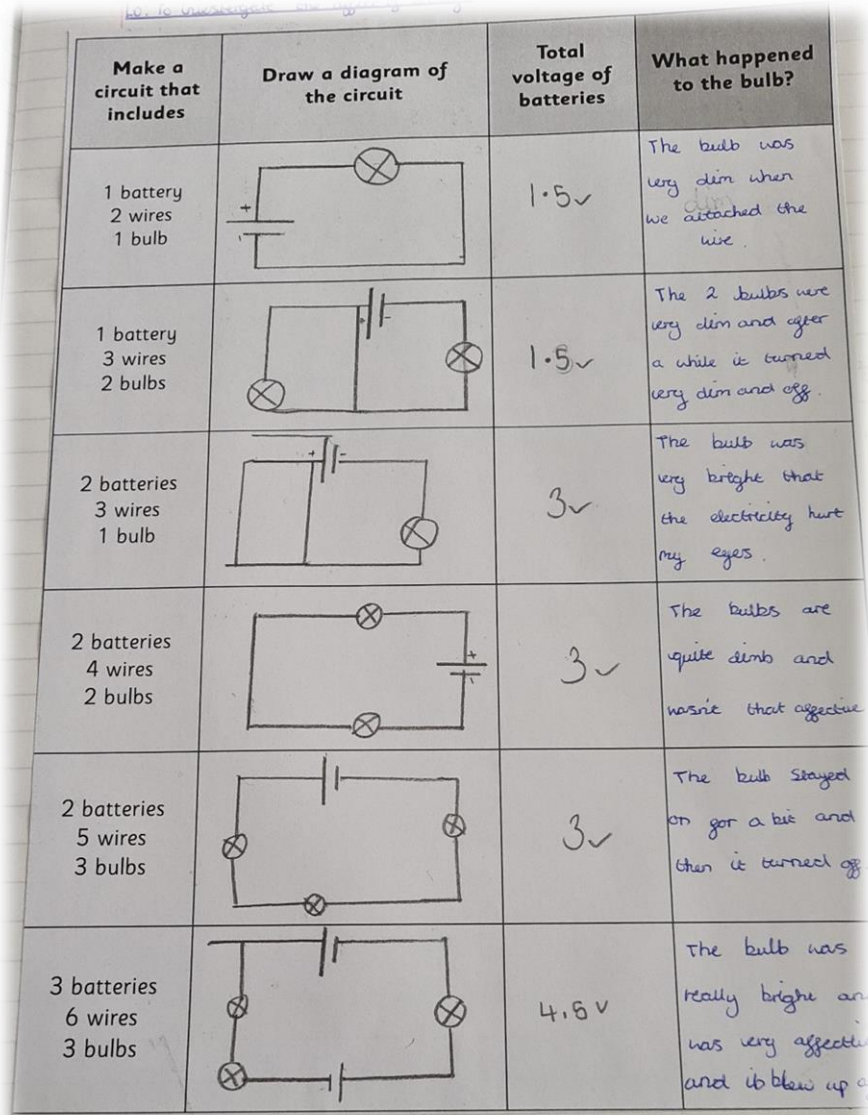 LO. To investigate the
Make a
circuit that
includes
Draw a diagram of
the circuit
Total
voltage of
batteries
What happened
to the bulb?
1 battery
2 wires
1 bulb
+
-
1.5v
The bulb was
very dim when
we attached the
wire.
1 battery
3 wires
2 bulbs
+
-
1.5v
The 2 bulbs were
very dim and after
a while it turned
very dim and off.
2 batteries
3 wires
1 bulb
+
-
3v
The bulb was
very bright that
the electricity hurt
my eyes.
2 batteries
4 wires
2 bulbs
+
-
3v
The bulbs are
quite dimb and
wasn't that affective
2 batteries
5 wires
3 bulbs
3v
The bulb stayed
on for a bit and
then it turned off
3 batteries
6 wires
3 bulbs
4.5v
The bulb was
really bright an
was very affecti
and it blew up a